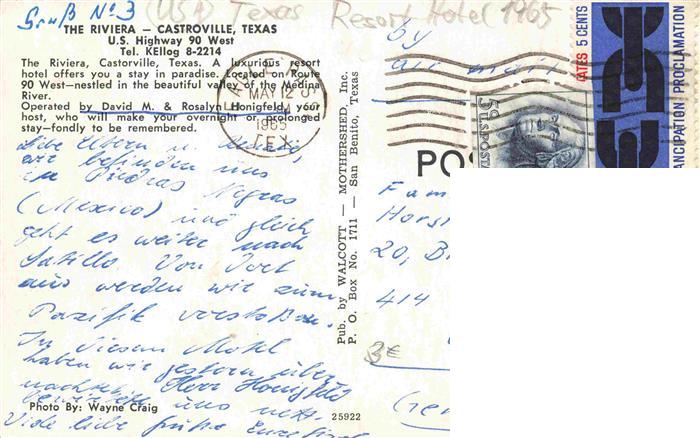 Gruß No 3
(USA) Texas Resort Hotel 1965
THE RIVIERA — CASTROVILLE, TEXAS
U.S. Highway 90 West
Tel. KEllog 8-2214
The Riviera, Castorville, Texas. A luxurious resort
hotel offers you a stay in paradise. Located on Route
90 West—nestled in the beautiful valley of the Medina
River.
Operated by David M. & Rosalyn Honigfeld, your
host, who will make your overnight or prolonged
stay—fondly to be remembered.
Liebe Eltern u.
wir befinden uns
in Piedras Negras
(Mexico) und gleich
geht es weiter nach
Saltillo. Von dort
aus werden wir zum
Pazifik vorstoßen.
In diesem Motel
haben wir gestern über
nachtet. Herr Honigfeld
bewirtete uns nett.
Viele liebe Grüße Eure
Photo By: Wayne Craig
25922
Pub. by WALCOTT — MOTHERSHED, Inc.
P. O. Box No. 1711 — San Benito, Texas
By
air mail
MAY 12
1965
TEX.
5c U.S. POSTAGE
ATES 5 CENTS
ANCIPATION PROCLAMATION
PO
Fam
Horst
20, B
414
3€
(Ge